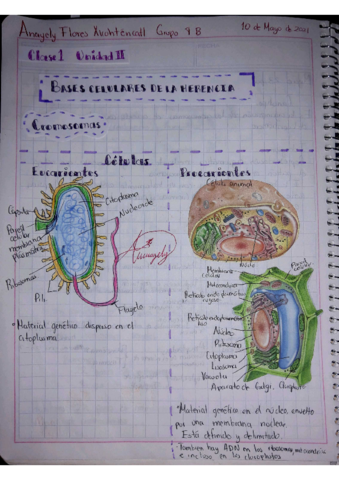 Anayely Flores Xicohtencatl Grupo 4 B 10 de Mayo de 2021
Clase 1 Unidad II
BASES CELULARES DE LA HERENCIA
Cromosomas
Células
Eucariontes
Procariontes
Célula animal
Citoplasma
Nucleoide
Capsula
Pared celular
membrana
Plasmática
Ribosomas
Pili
Flagelo
Nucleo
Membrana celular
Pared celular
Mitocondrias
Reticulo endoplasmatico
rugoso
Reticulo endoplasmatico
liso
Nucleo
Ribosoma
Citoplasma
Lisosoma
Vacuola
Aparato de Golgi
*Material genético disperso en el
citoplasma
*Material genético en el núcleo envuelto
por una membrana nuclear.
Está definido y delimitado
*También hay ADN en las mitocondria
e incluso en los cloroplastos